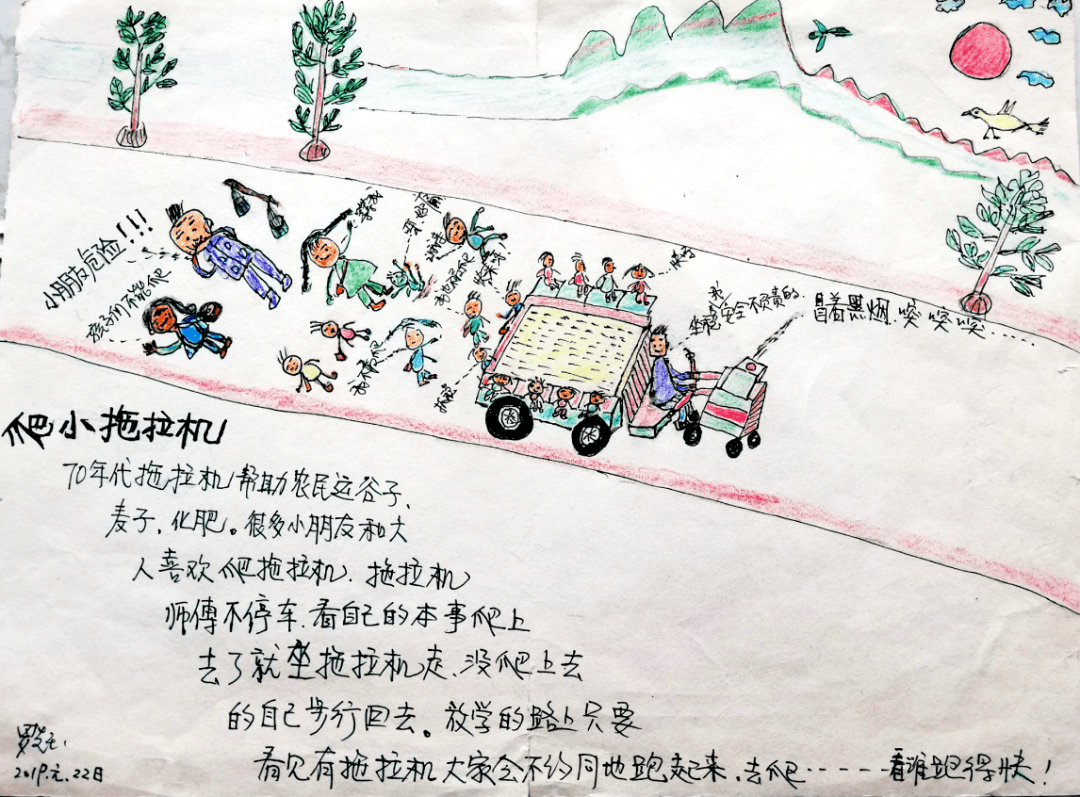 小朋友危险!!!
孩子们不能爬
我安全不负责的.
冒着黑烟.突突突……
爬小拖拉机
70年代拖拉机帮助农民运谷子、
麦子、化肥。很多小朋友和大
人喜欢爬拖拉机、拖拉机
师傅不停车、看自己的本事爬上
去了就坐拖拉机走、没爬上去
的自己步行回去。放学的路上只要
看见有拖拉机大家会不约同地跑起来、去爬……看谁跑得快!
2019.元.22日